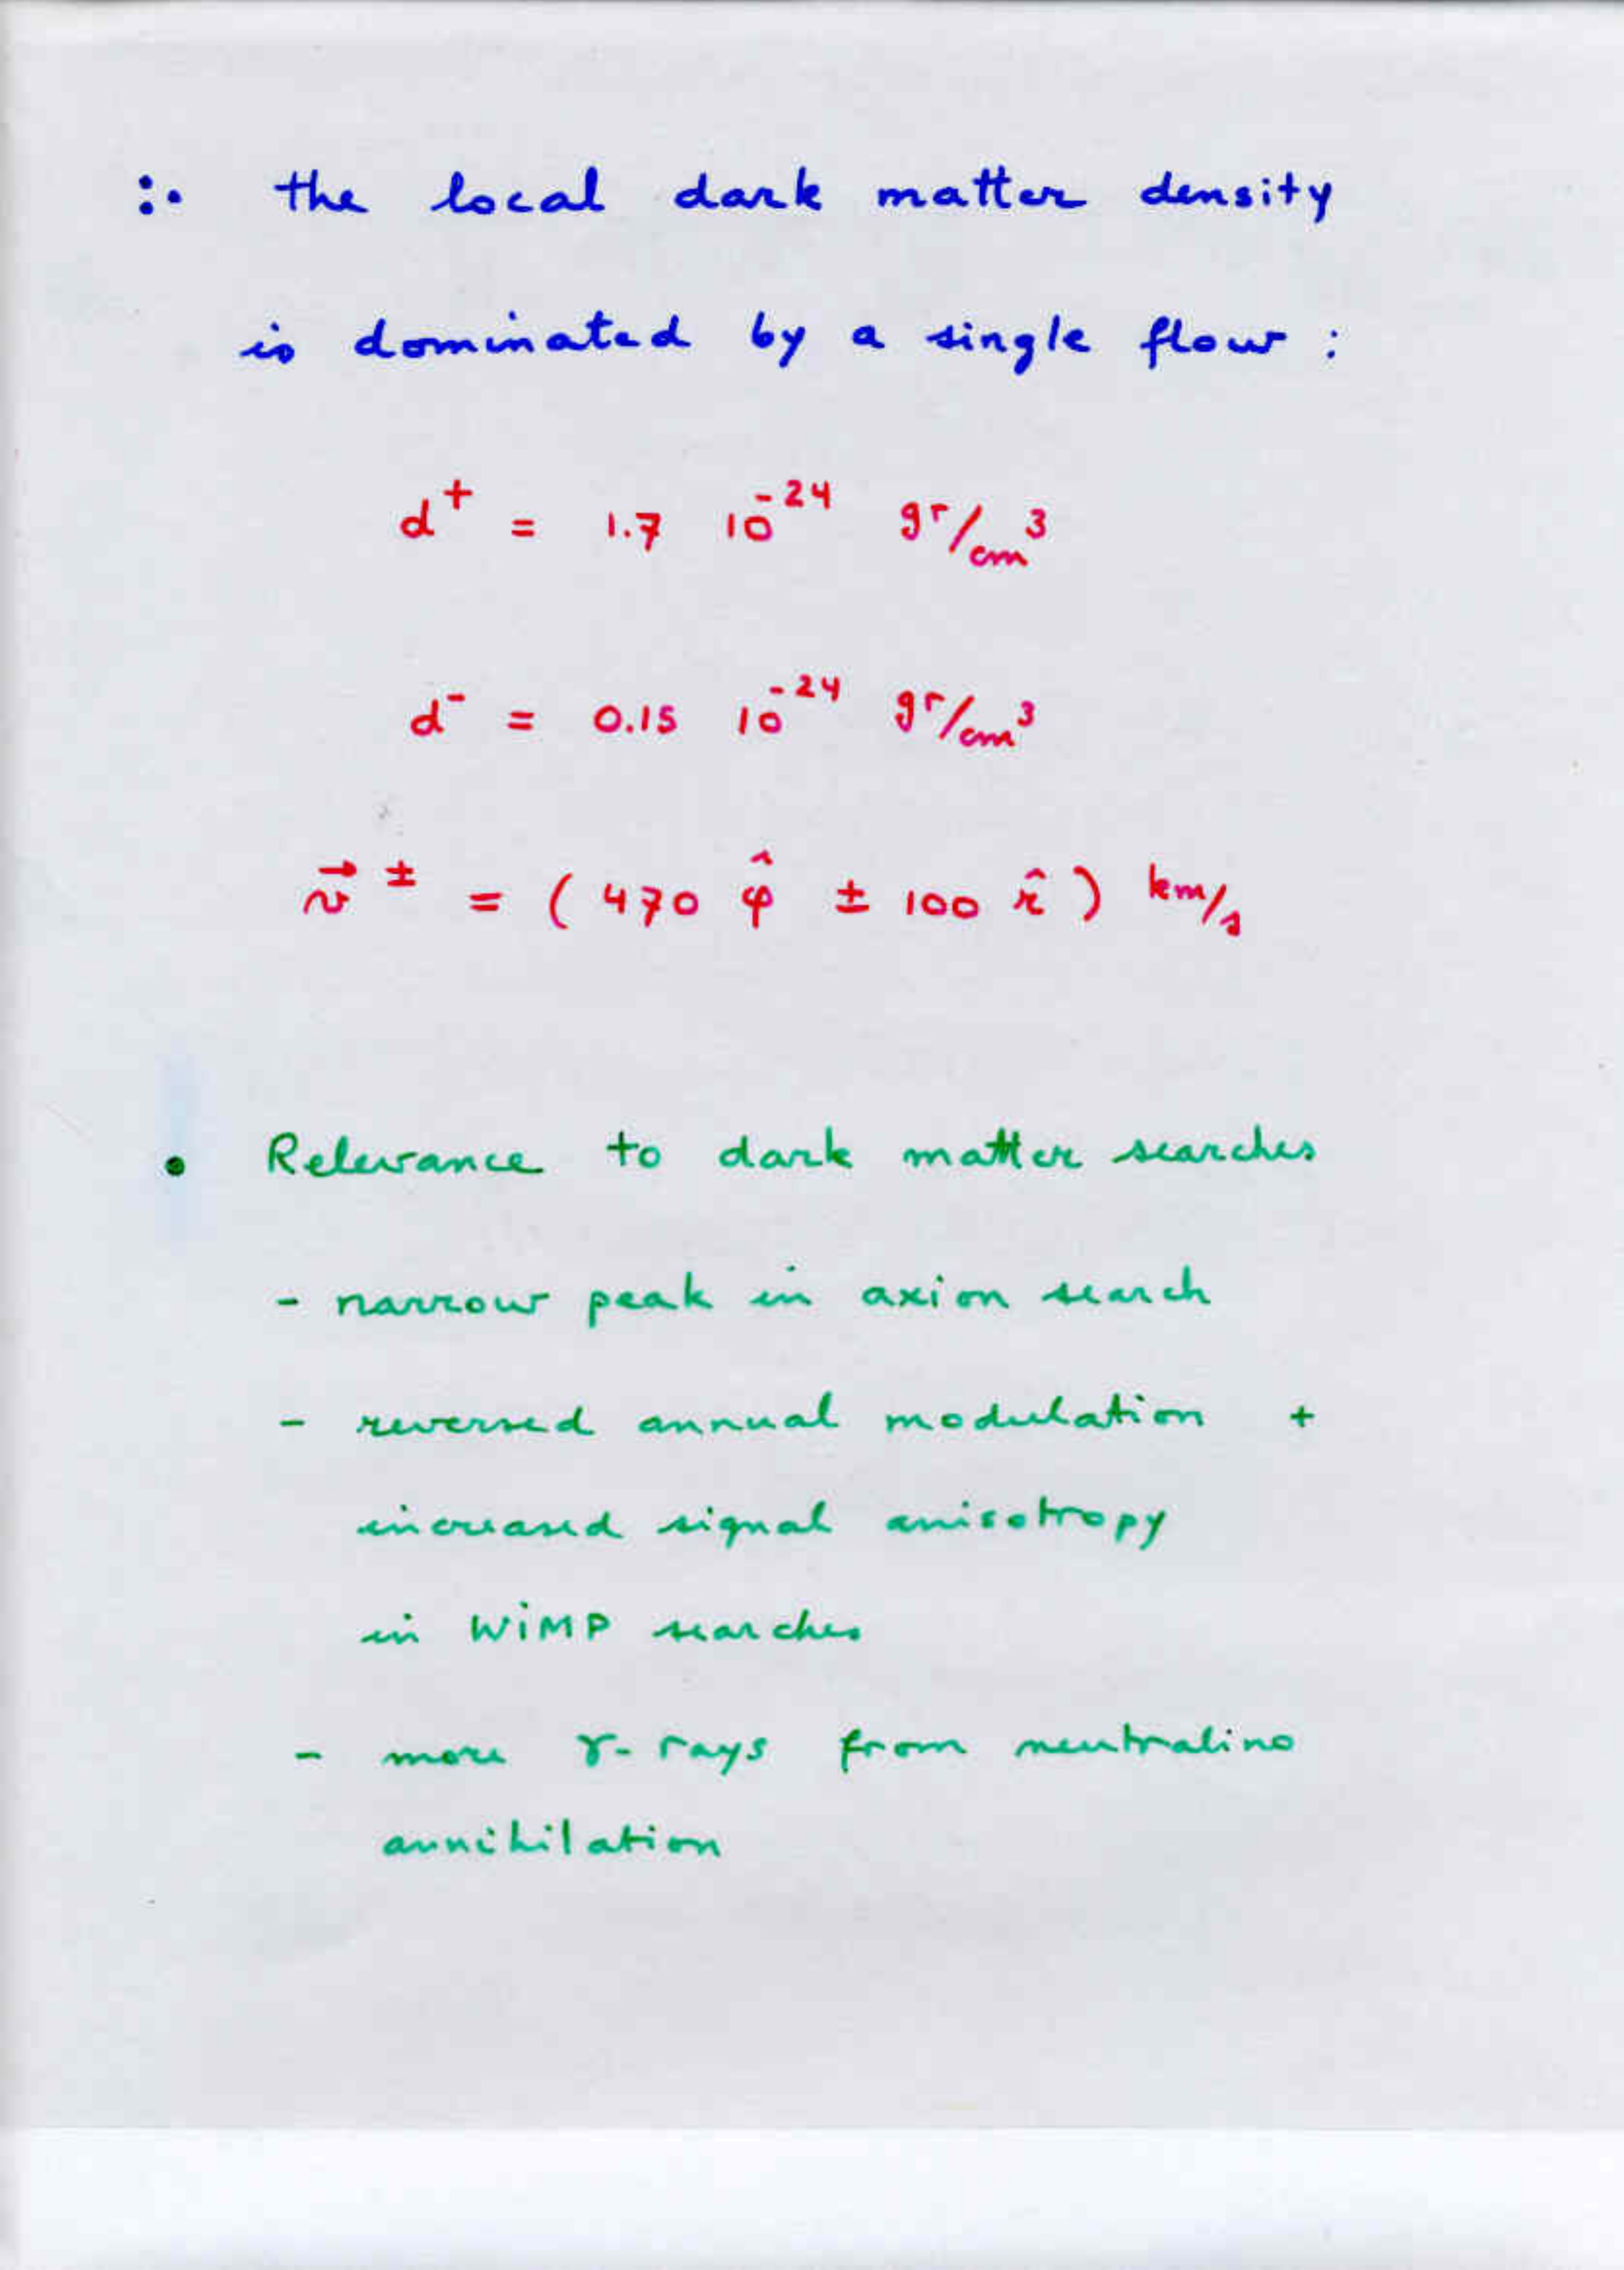 :· the local dark matter density
is dominated by a single flow :
d⁺ = 1.7 10⁻²⁴ gr/cm³
d⁻ = 0.15 10⁻²⁴ gr/cm³
v⃗ ± = ( 470 φ̂ ± 100 r̂ ) km/s
• Relevance to dark matter searches
- narrow peak in axion search
- reversed annual modulation +
increased signal anisotropy
in WiMP searches
- more γ-rays from neutralino
annihilation